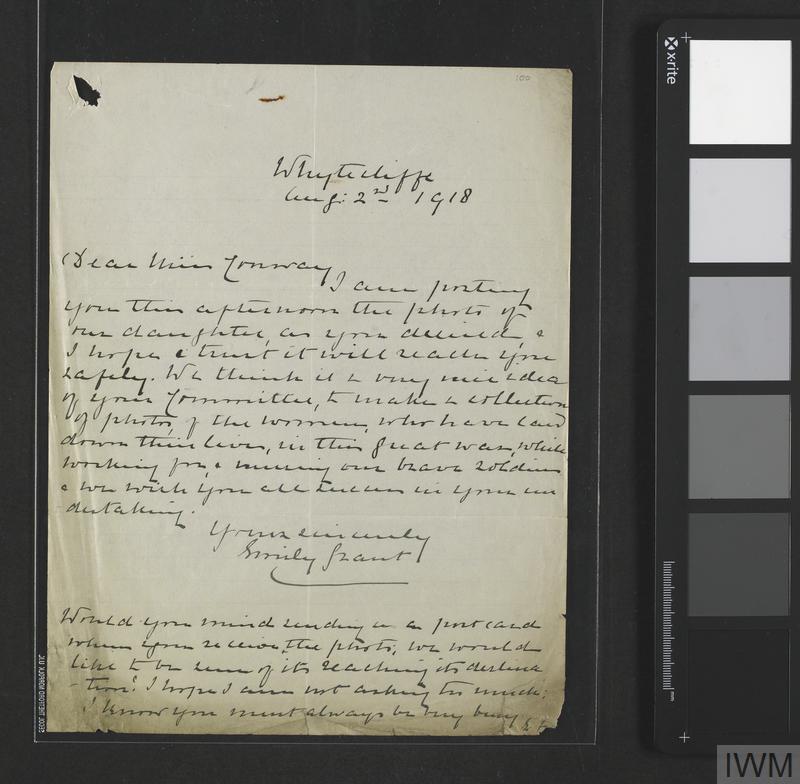 100
Whytecliffe
Aug: 2nd 1918
Dear Miss Conway
I am posting
you this afternoon the photo of
our daughter, as you desired, &
I hope & trust it will reach you
safely. We think it a very nice idea
of your Committee, to make a collection
of photos, of the women, who have laid
down their lives, in this great war, while
working for, & nursing our brave soldiers
& we wish you all success in your un
dertaking.
Yours sincerely
Emily Grant
Would you mind sending us a post card
when you receive the photo, we would
like to be sure of its reaching its destina
-tion? I hope I am not asking too much:
I know you must always be very busy
x-rite
mm
IWM